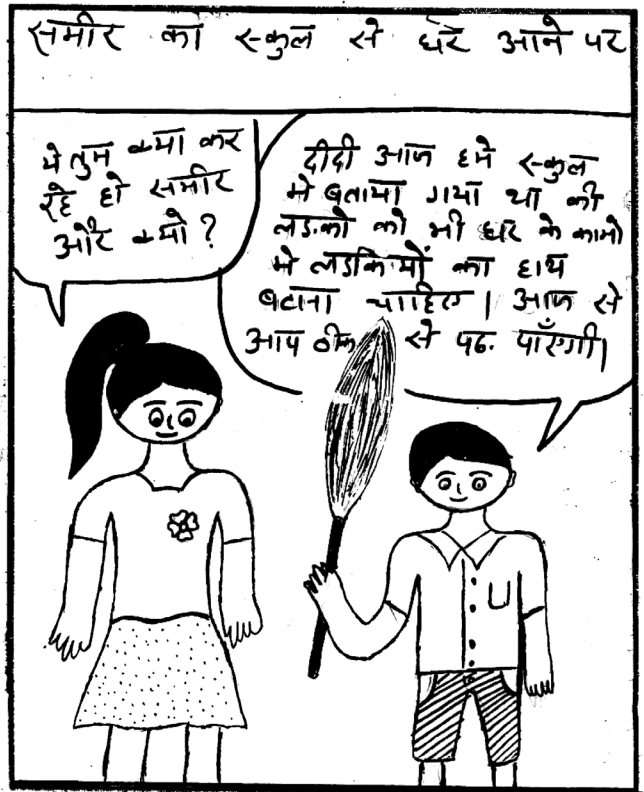 समीर का स्कुल से घर आने पर
ये तुम क्या कर
रहे हो समीर
और क्यो ?
दीदी आज हमे स्कुल
मे बताया गया था की
लडको को भी घर के कामो
मे लडकियों का हाथ
बटाना चाहिए । आज से
आप ठीक से पढ पाएँगी।